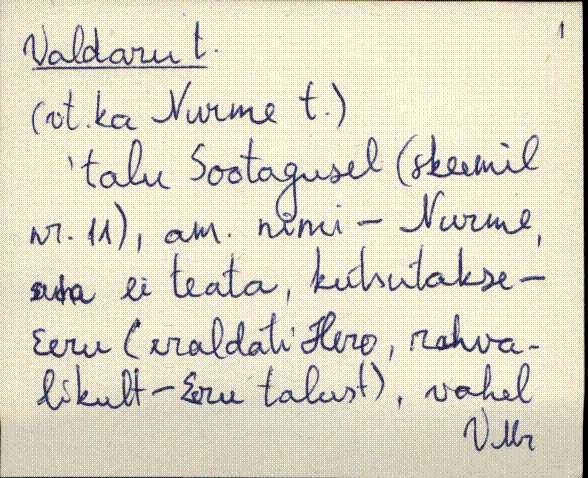 1
Valdaru t.
(vt. ka Nurme t.)
'talu Sootagusel (skeemil
nr. 11), am. nimi – Nurme,
ei teata, kutsutakse –
Eeru (eraldati Hero, rahva-
likult – Eru talust), vahel
VMr